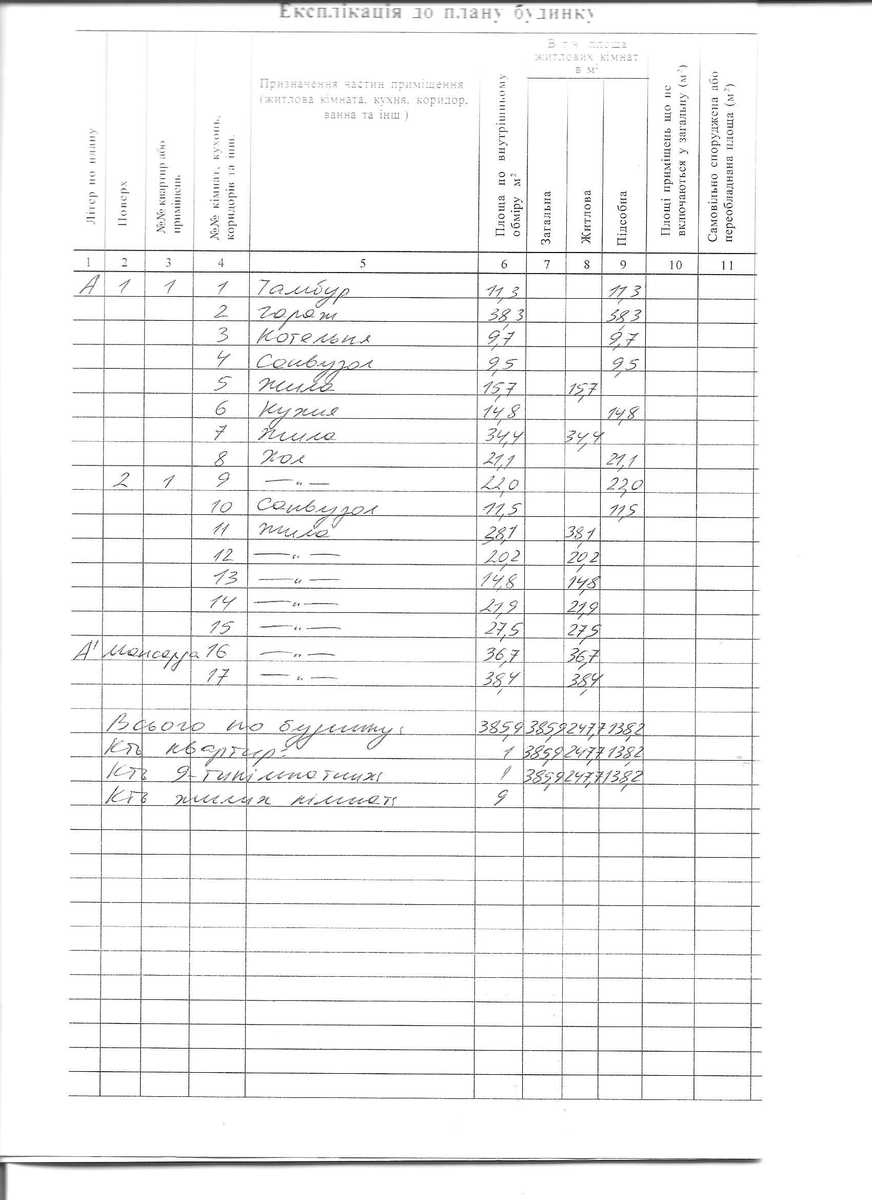 Експлікація до плану будинку
Літер по плану
Поверх
№№ квартир або приміщень
№№ кімнат, кухонь, коридорів та інш.
Призначення частин приміщення
(житлова кімната, кухня, коридор,
ванна та інш.)
Площа по внутрішньому обміру м²
В т.ч. площа
житлових кімнат
в м²
Загальна
Житлова
Підсобна
Площі приміщень що не включаються у загальну (м²)
Самовільно споруджена або переобладнана площа (м²)
1 2 3 4 5 6 7 8 9 10 11
А 1 1 1 Тамбур 11,3 11,3
2 Гараж 38,3 38,3
3 Котельня 9,7 9,7
4 Санвузол 9,5 9,5
5 Жила 15,7 15,7
6 Кухня 14,8 14,8
7 Жила 34,4 34,4
8 Хол 21,1 21,1
2 1 9 —"— 22,0 22,0
10 Санвузол 11,5 11,5
11 Жила 38,1 38,1
12 —"— 20,2 20,2
13 —"— 14,8 14,8
14 —"— 21,9 21,9
15 —"— 27,5 27,5
А' Мансарда 16 —"— 36,7 36,7
17 —"— 38,4 38,4
Всього по будинку: 385,9 385,9 247,7 138,2
Кть квартир: 1 385,9 247,7 138,2
Кть 9-тикімнатних 1 385,9 247,7 138,2
Кть жилих кімнат: 9